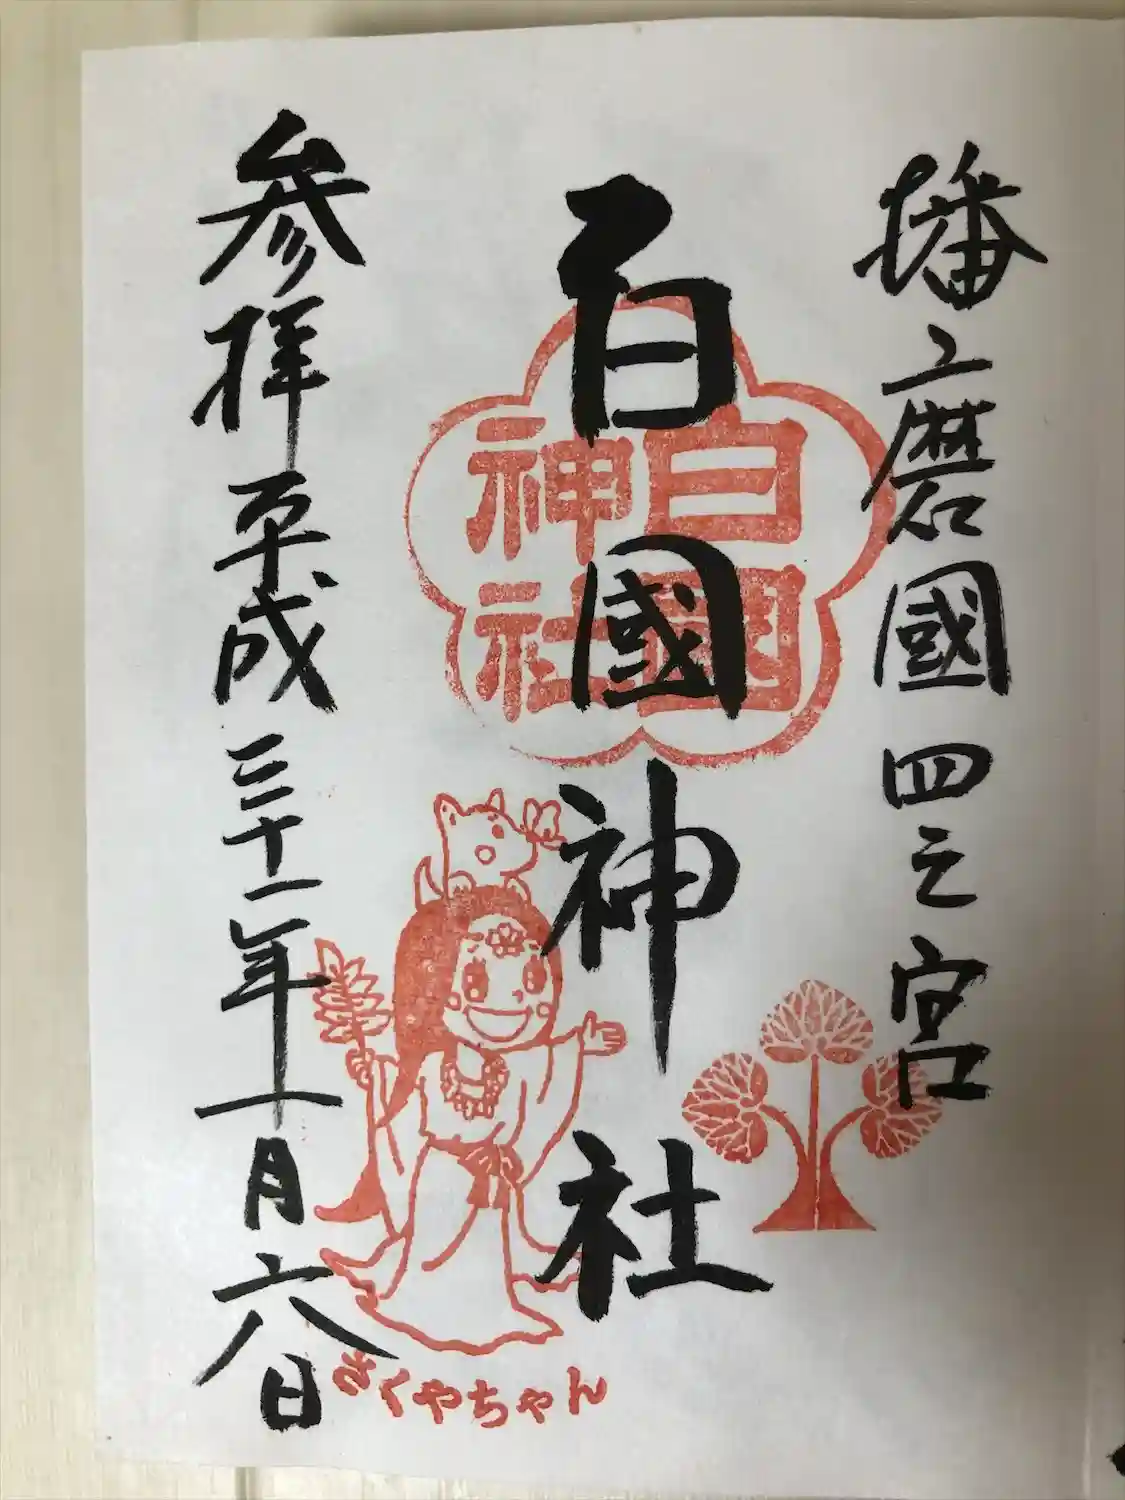 播磨國 四之宮
白國神社
白國
神社
参拝平成三十一年一月六日
さくやちゃん